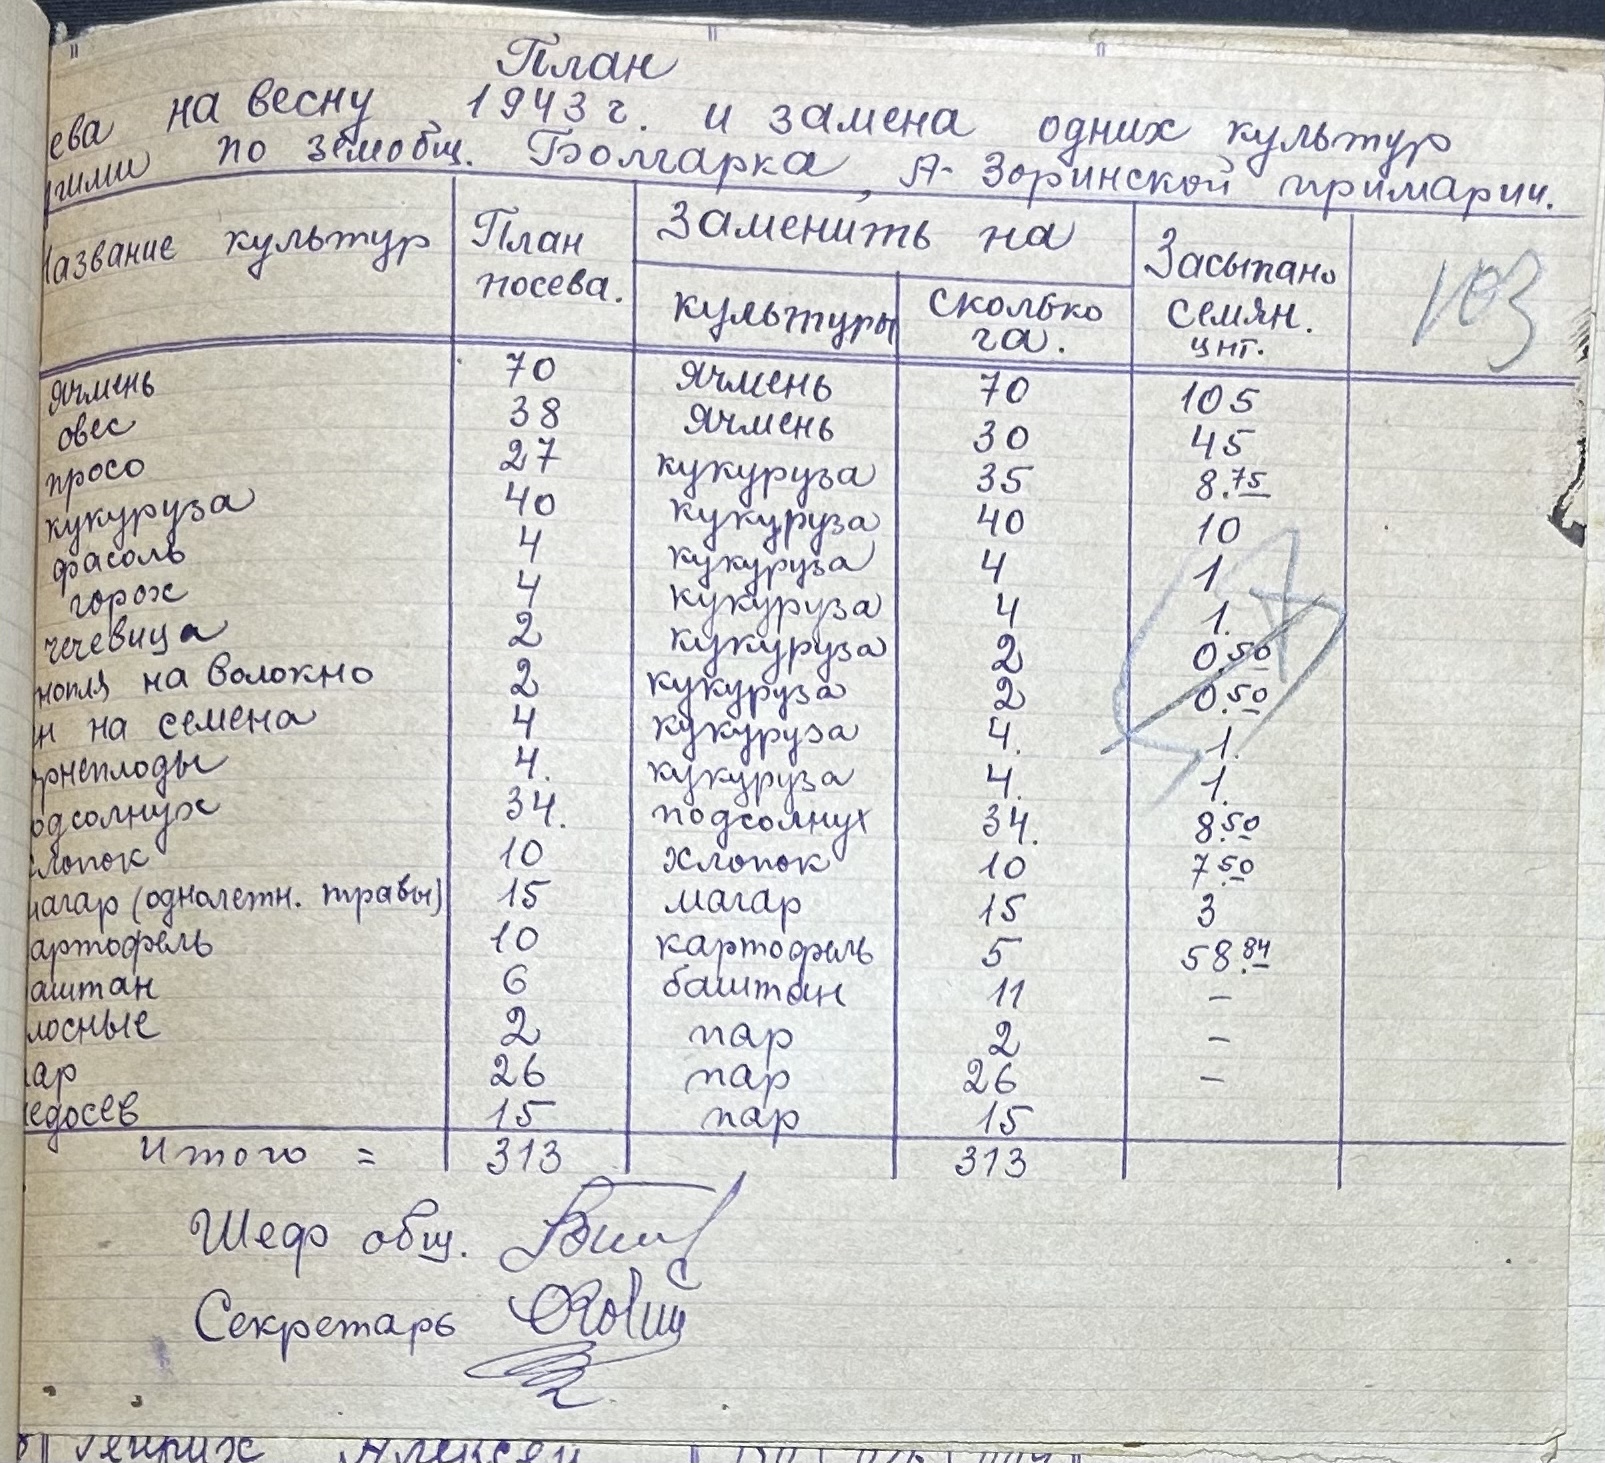 План
ева на весну 1943 г. и замена одних культур
гими по земобщ. Болгарка, А-Зоринской примарии.
Название культур План посева. Заменить на культуры сколько га. Засыпано семян. цнт. 103
ячмень 70 ячмень 70 105
овес 38 ячмень 30 45
просо 27 кукуруза 35 8.75
кукуруза 40 кукуруза 40 10
фасоль 4 кукуруза 4 1
горох 4 кукуруза 4 1.
чечевица 2 кукуруза 2 0.50
нопля на волокно 2 кукуруза 2 0.50
н на семена 4 кукуруза 4. 1.
рнеплоды 4. кукуруза 4. 1.
одсолнух 34. подсолнух 34. 8.50
лопок 10 хлопок 10 7.50
магар (однолетн. травы) 15 магар 15 3
артофель 10 картофель 5 58.84
аштан 6 баштан 11 –
лосные 2 пар 2 –
ар 26 пар 26 –
едосев 15 пар 15
Итого = 313 313
Шеф общ.
Секретарь